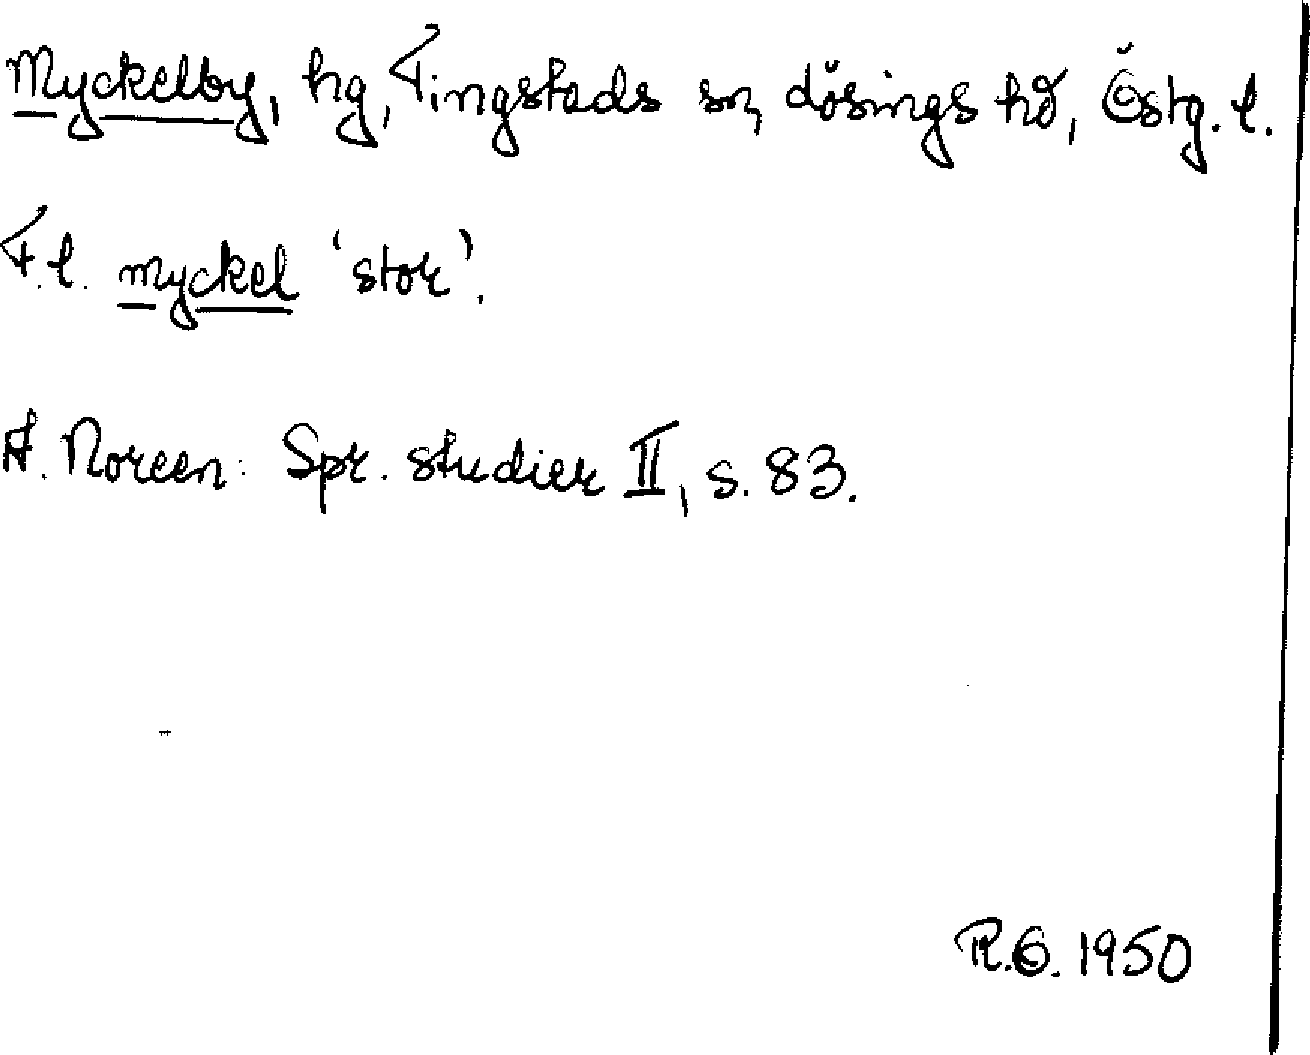 Myckelby, hg, Tingstads sn, Lösings hd, Östg. l.
F.l. myckel 'stor'.
A. Noreen: Spr. studier II, s. 83.
R.G. 1950